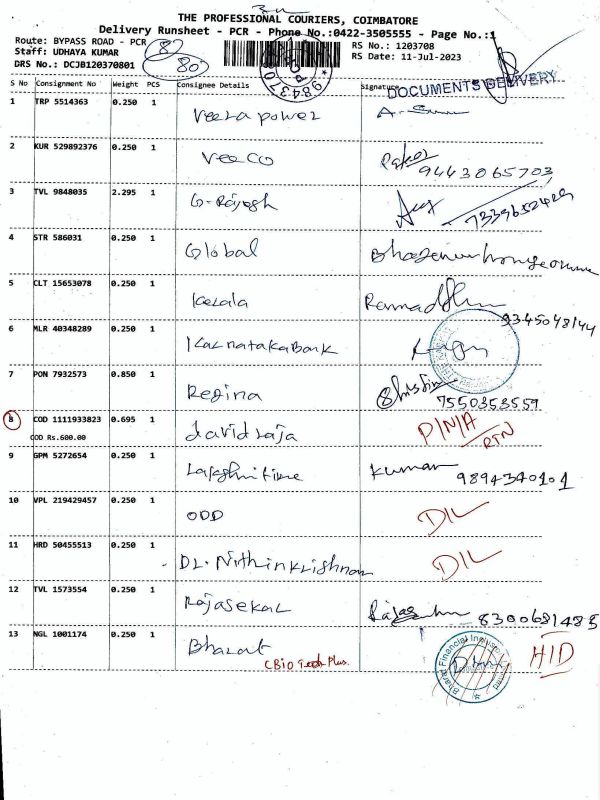 THE PROFESSIONAL COURIERS, COIMBATORE
Delivery Runsheet - PCR - Phone No.:0422-3505555 - Page No.:1
Route: BYPASS ROAD - PCR
RS No.: 1203708
Staff: UDHAYA KUMAR
RS Date: 11-Jul-2023
DRS No.: DCJB120370801
82
80
PCR
984370
S No Consignment No Weight PCS Consignee Details Signature
DOCUMENTS DELIVERY
1 TRP 5514363 0.250 1 Veera power
2 KUR 529892376 0.250 1 VeeCo
9443065703
3 TVL 9848035 2.295 1 G-Rajesh
7339652429
4 STR 586031 0.250 1 Global
5 CLT 15653078 0.250 1 Kerala
9345048144
6 MLR 40348289 0.250 1 Karnataka Bank
7 PON 7932573 0.850 1 Regina
7550353559
8 COD 1111933823 0.695 1 david raja P/N/A
COD Rs.600.00 RTN
9 GPM 5272654 0.250 1 Kumar
9894340101
10 VPL 219429457 0.250 1 ODD DIL
11 HRD 50455513 0.250 1 Dr. Nithin Krishnan DIL
12 TVL 1573554 0.250 1 Rajasekar
8300681485
13 NGL 1001174 0.250 1 Bharat H/D
Bharat Financial Inclusion